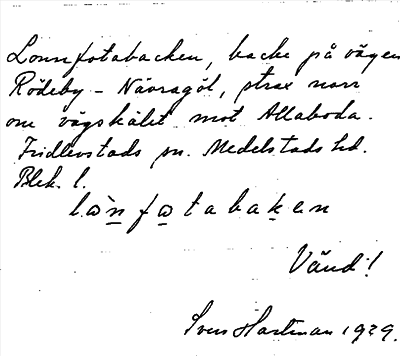 Lonnfotabacken, backe på vägen
Rödeby - Nävragöl, strax norr
om vägskälet mot Allaboda.
Fridlevstads sn. Medelstads hd.
Blek. l.
lo̯ǹfo̯tabaken
Vänd!
Sven Hartman 1929.